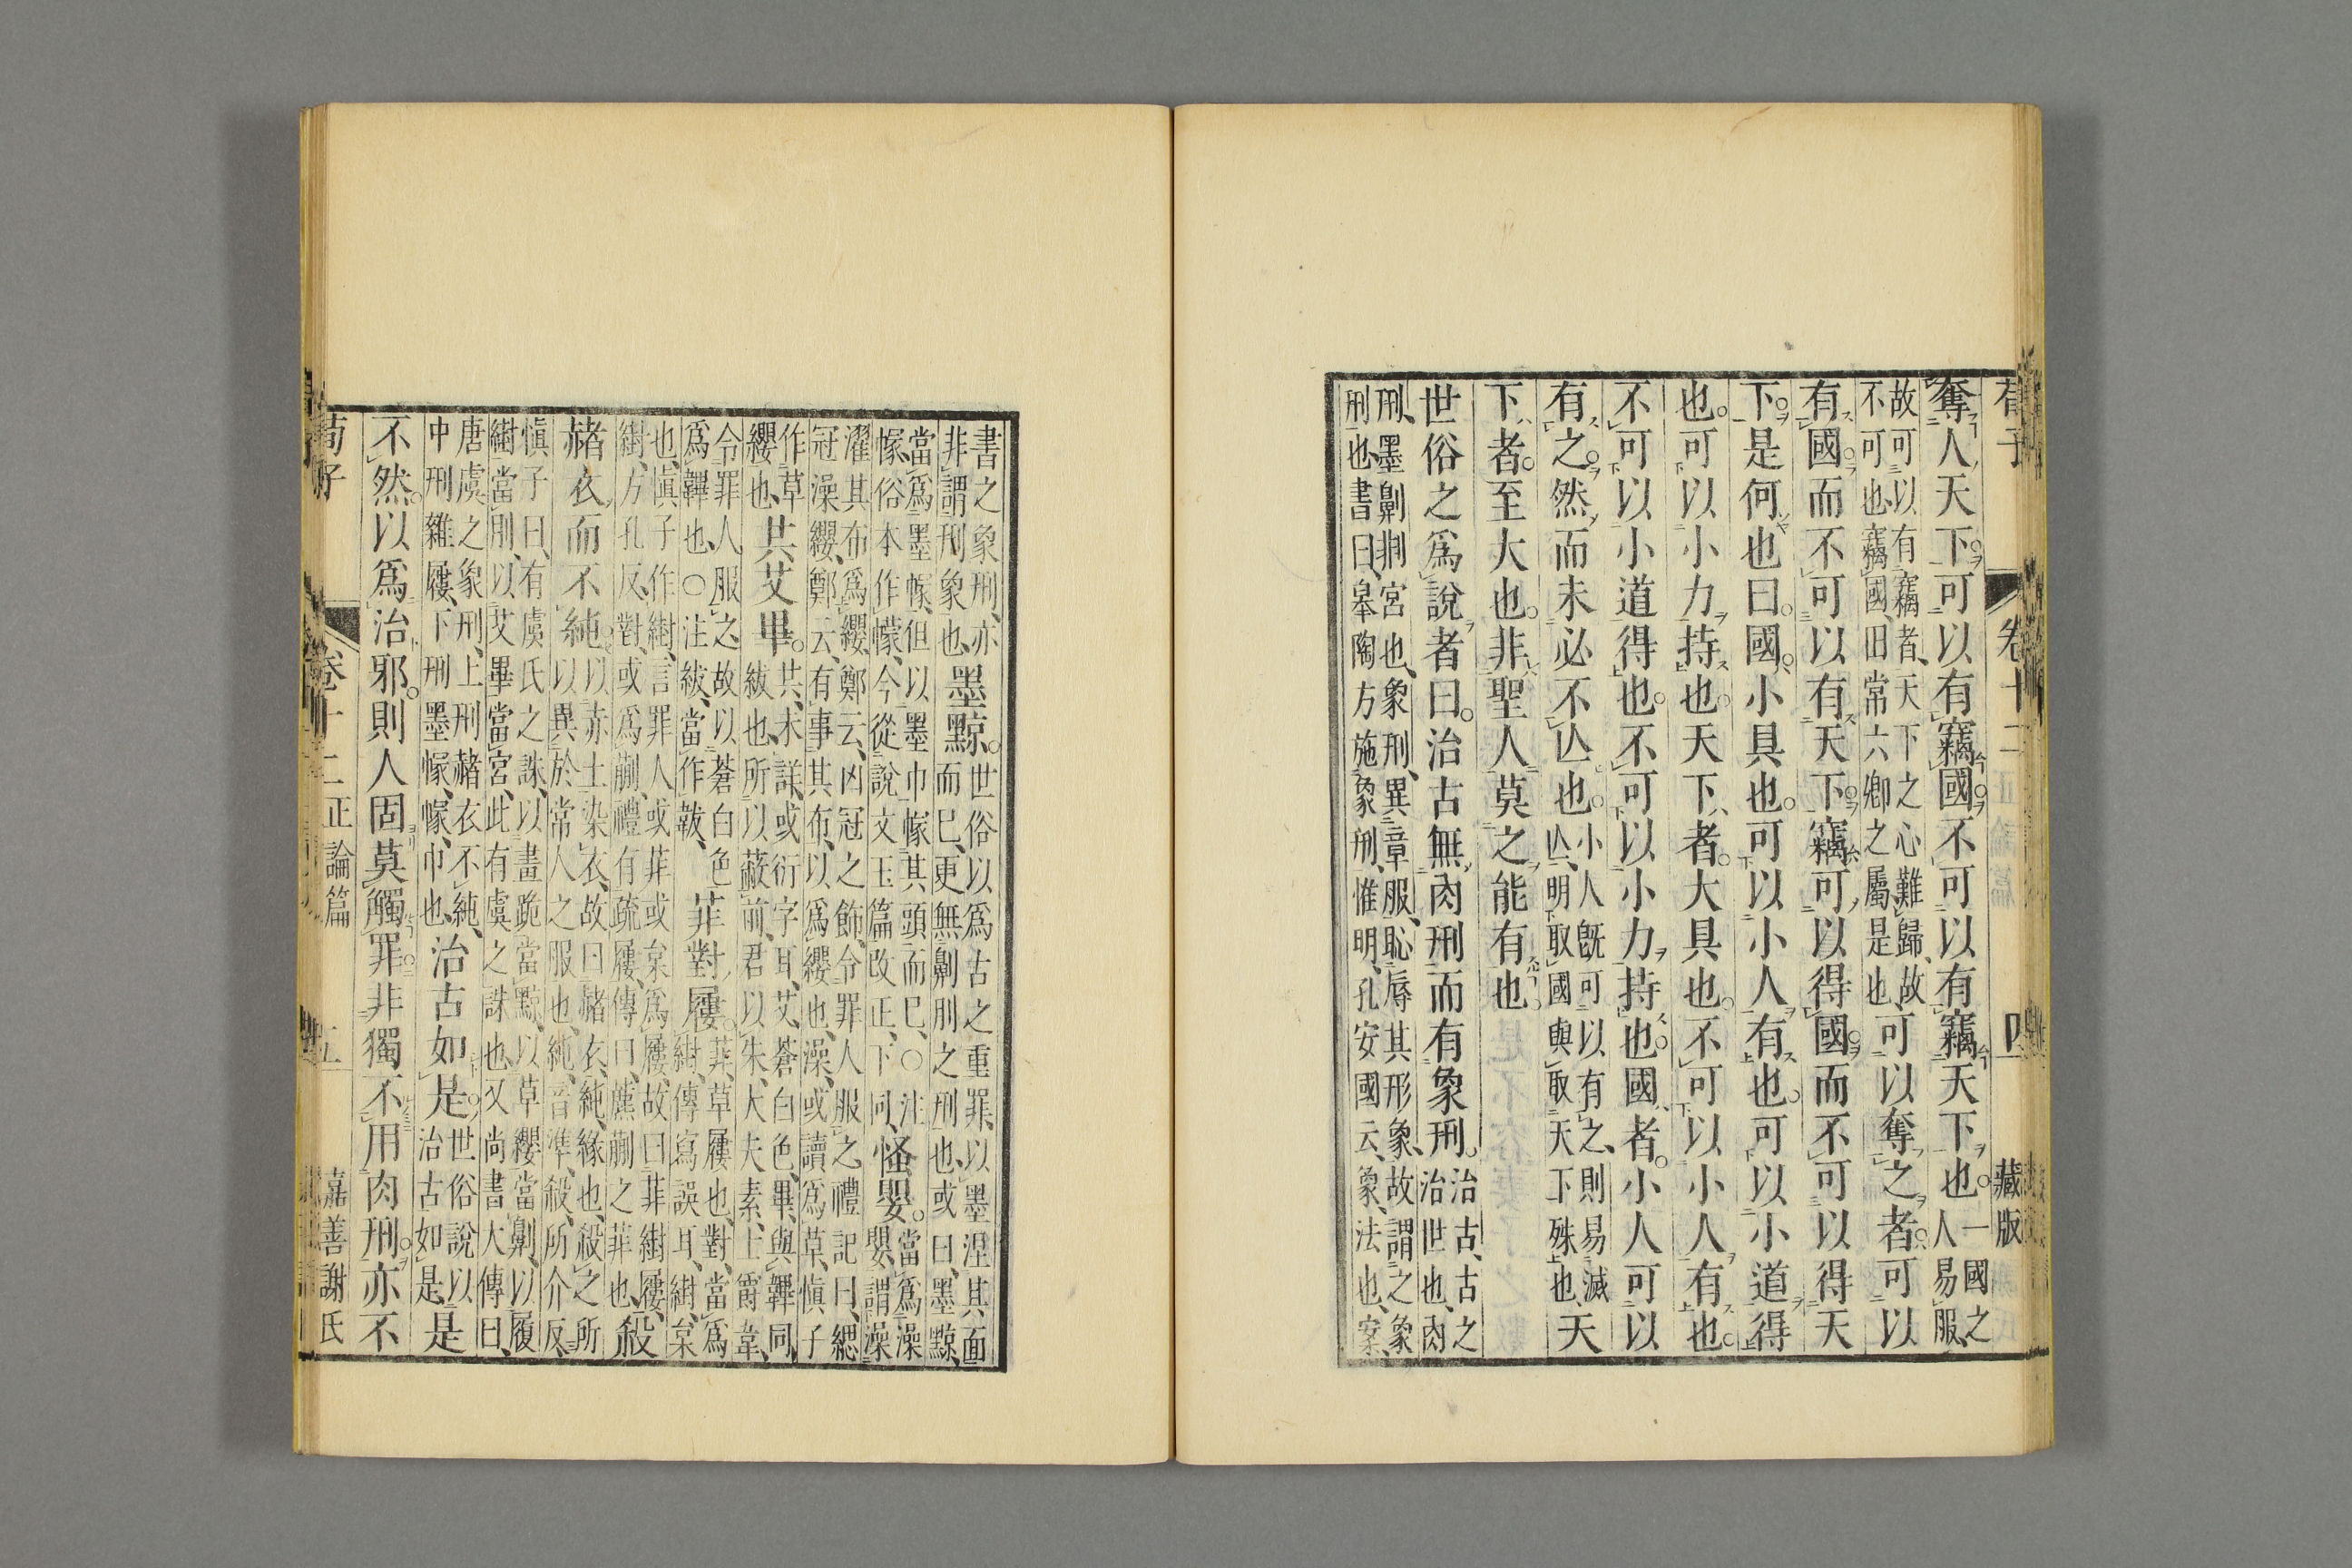 荀子 卷十二 四 藏版
奪人天下。可以有竊國。不可以有竊天下也。一國之人易服、
故可以有竊者、天下之心難歸、故不可也、竊國、田常六卿之屬是也、可以奪之者。可以
有國。而不可以有天下。竊可以得國。而不可以得天
下。是何也。曰。國小具也。可以小人有也。可以小道得
也。可以小力持也。天下者。大具也。不可以小人有也。
不可以小道得也。不可以小力持也。國者。小人可以
有之。然而未必不亾也。小人旣可以有之、則易滅亾、明取國與取天下殊也、天
下者。至大也。非聖人莫之能有也。
世俗之爲說者曰。治古無肉刑而有象刑。治古、古之治世也、肉
刑、墨劓剕宮也、象刑、異章服、恥辱其形象、故謂之象刑也、書曰、皋陶方施象刑、惟明、孔安國云、象、法也、案、
書之象刑、亦非謂刑象也、墨黥。世俗以爲古之重罪、以墨涅其面而已、更無劓刖之刑也、或曰、墨黥、
當爲墨幏、但以墨巾幏其頭而已、○注幏、俗本作幪、今從說文玉篇改正、下同、怪嬰。當爲澡嬰、謂澡
濯其布爲纓、鄭云、凶冠之飾、令罪人服之、禮記曰、緦冠澡纓、鄭云、有事其布、以爲纓也、澡、或讀爲草、愼子
作草纓也、共艾畢。共、未詳、或衍字耳、艾、蒼白色、畢、與韠同、紱也、所以蔽前、君以朱、大夫素、士爵韋、
令罪人服之、故以蒼白色爲韠也、○注紱、當作韍、菲對屨。菲、草屨也、對、當爲䋽、傳寫誤耳、䋽、枲
也、愼子作䋽、言罪人或菲或枲爲屨、故曰菲䋽屨、䋽、方孔反、對、或爲蒯、禮有疏屨、傳曰、藨蒯之菲也、殺
赭衣而不純。以赤土染衣、故曰赭衣、純、緣也、殺之所以異於常人之服也、純、音準、殺、所介反、
愼子曰、有虞氏之誅、以畫跪當黥、以草纓當劓、以履䋽當刖、以艾畢當宮、此有虞之誅也、又尚書大傳曰、
唐虞之象刑、上刑赭衣不純、中刑雜屨、下刑墨幏、幏、巾也、治古如是。世俗說以治古如是、是
不然。以爲治邪。則人固莫觸罪。非獨不用肉刑。亦不
荀子 卷十二 正論篇 五 嘉善謝氏